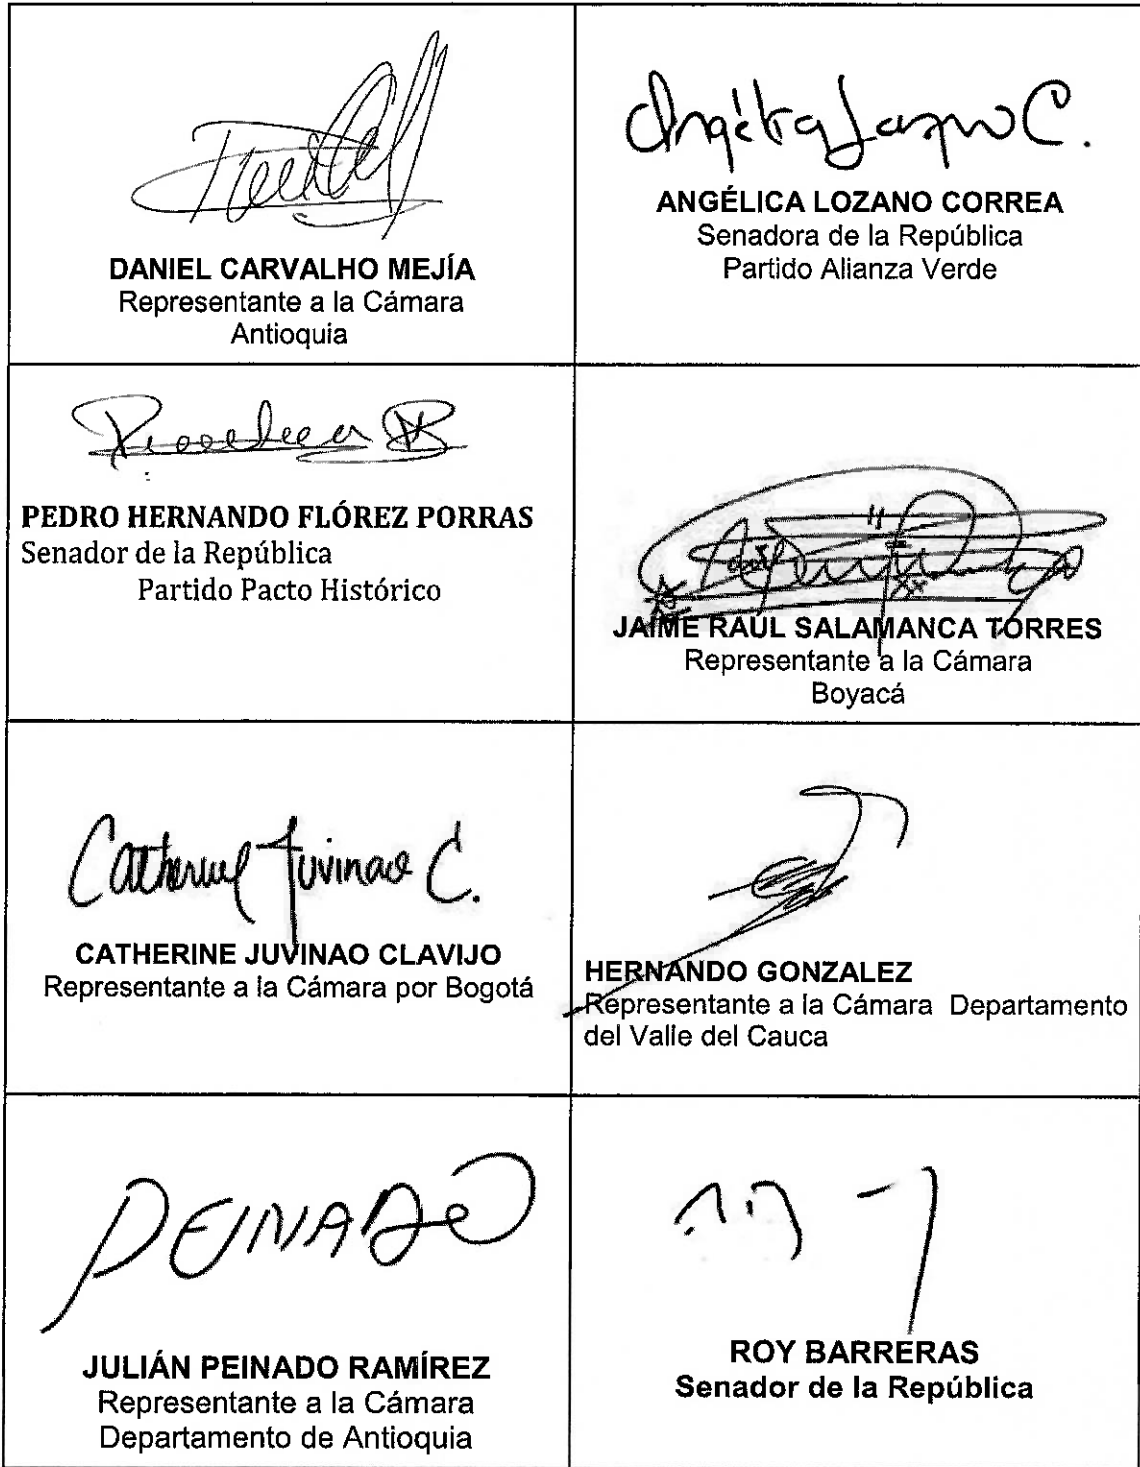 DANIEL CARVALHO MEJÍA
Representante a la Cámara
Antioquia
Angélica Lozano C.
ANGÉLICA LOZANO CORREA
Senadora de la República
Partido Alianza Verde
PEDRO HERNANDO FLÓREZ PORRAS
Senador de la República
Partido Pacto Histórico
JAIME RAUL SALAMANCA TORRES
Representante a la Cámara
Boyacá
Catherine Juvinao C.
CATHERINE JUVINAO CLAVIJO
Representante a la Cámara por Bogotá
HERNANDO GONZALEZ
Representante a la Cámara Departamento
del Valle del Cauca
PEINADO
JULIÁN PEINADO RAMÍREZ
Representante a la Cámara
Departamento de Antioquia
ROY BARRERAS
Senador de la República